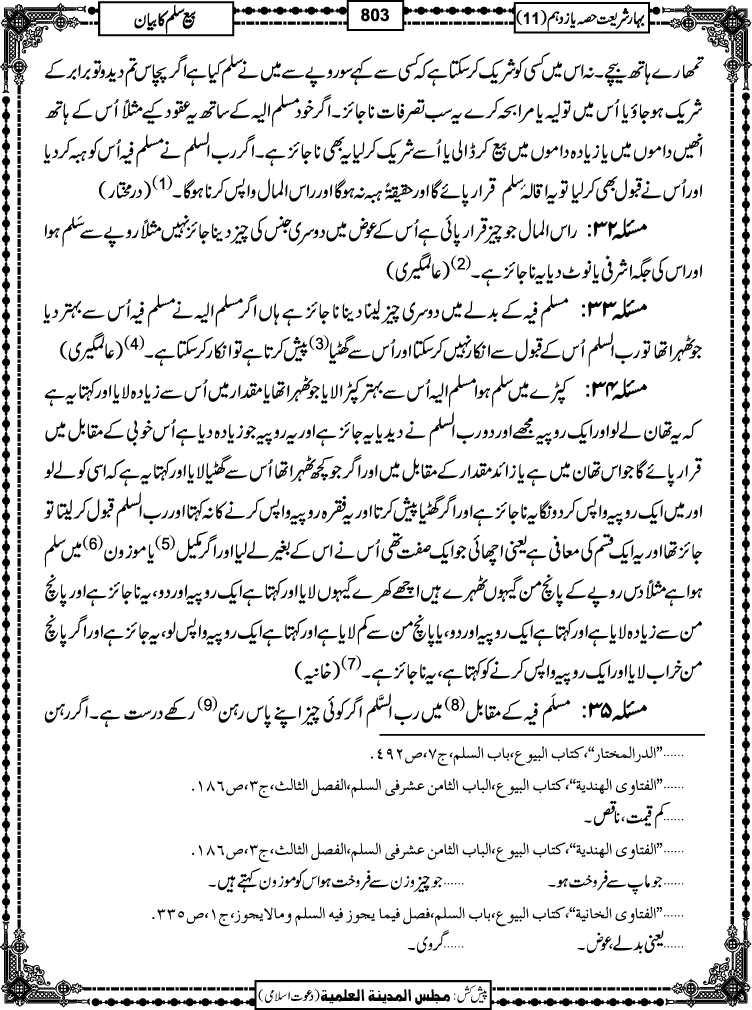 بہارِ شریعت حصہ یازدہم (11)
803
بیع سلم کا بیان
تمھارے ہاتھ بیچے۔ نہ اس میں کسی کو شریک کرسکتا ہے کہ کسی سے کہے سو روپے سے میں نے سلم کیا ہے اگر پچاس تم دیدو تو برابر کے
شریک ہوجاؤ یا اُس میں تولیہ یا مرابحہ کرے یہ سب تصرفات ناجائز۔ اگر خود مسلم الیہ کے ساتھ یہ عقود کیے مثلاً اُس کے ہاتھ
انھیں داموں میں یا زیادہ داموں میں بیع کرڈالی یا اُسے شریک کرلیا یہ بھی ناجائز ہے۔ اگر رب السلم نے مسلم فیہ اُس کو ہبہ کردیا
اور اُس نے قبول بھی کرلیا تو یہ اقالۂ سلم قرار پائے گا اور حقیقۃً ہبہ نہ ہوگا اور راس المال واپس کرنا ہوگا۔(1) (درمختار)
مسئلہ ۳۲: راس المال جو چیز قرار پائی ہے اُس کے عوض میں دوسری جنس کی چیز دینا جائز نہیں مثلاً روپے سے سَلم ہوا
اور اس کی جگہ اشرفی یا نوٹ دیا یہ ناجائز ہے۔(2) (عالمگیری)
مسئلہ ۳۳: مسلم فیہ کے بدلے میں دوسری چیز لینا دینا ناجائز ہے ہاں اگر مسلم الیہ نے مسلم فیہ اُس سے بہتر دیا
جو ٹھہرا تھا تو رب السلم اُس کے قبول سے انکار نہیں کرسکتا اور اُس سے گھٹیا(3) پیش کرتا ہے تو انکار کرسکتا ہے۔(4) (عالمگیری)
مسئلہ ۳۴: کپڑے میں سلم ہوا مسلم الیہ اُس سے بہتر کپڑا لایا جو ٹھہرا تھا یا مقدار میں اُس سے زیادہ لایا اور کہتا یہ ہے
کہ یہ تھان لے لو اور ایک روپیہ مجھے اور دو رب السلم نے دیدیا یہ جائز ہے اور یہ روپیہ جو زیادہ دیا ہے اُس خوبی کے مقابل میں
قرار پائے گا جو اس تھان میں ہے یا زائد مقدار کے مقابل میں اور اگر جو کچھ ٹھہرا تھا اُس سے گھٹیا لایا اور کہتا یہ ہے کہ اسی کو لے لو
اور میں ایک روپیہ واپس کردونگا یہ ناجائز ہے اور اگر گھٹیا پیش کرتا اور یہ فقرہ روپیہ واپس کرنے کا نہ کہتا اور رب السلم قبول کرلیتا تو
جائز تھا اور یہ ایک قسم کی معافی ہے یعنی اچھائی جو ایک صفت تھی اُس نے اس کے بغیر لے لیا اور اگر مکیل(5) یا موزون(6) میں سلم
ہوا ہے مثلاً دس روپے کے پانچ من گیہوں ٹھہرے ہیں اچھے کھرے گیہوں لایا اور کہتا ہے ایک روپیہ اور دو، یہ ناجائز ہے اور پانچ
من سے زیادہ لایا ہے اور کہتا ہے ایک روپیہ اور دو، یا پانچ من سے کم لایا ہے اور کہتا ہے ایک روپیہ واپس لو، یہ جائز ہے اور اگر پانچ
من خراب لایا اور ایک روپیہ واپس کرنے کو کہتا ہے، یہ ناجائز ہے۔(7) (خانیہ)
مسئلہ ۳۵: مسلَم فیہ کے مقابل(8) میں رب السَّلم اگر کوئی چیز اپنے پاس رہن(9) رکھے درست ہے۔ اگر رہن
......”الدرالمختار“، کتاب البیوع، باب السلم، ج۷، ص۴۹۲.
......”الفتاوی الھندیة“، کتاب البیوع، الباب الثامن عشرفی السلم، الفصل الثالث، ج۳، ص۱۸۶.
......کم قیمت، ناقص۔
......”الفتاوی الھندیة“، کتاب البیوع، الباب الثامن عشرفی السلم، الفصل الثالث، ج۳، ص۱۸۶.
......جو ماپ سے فروخت ہو۔ ......جو چیز وزن سے فروخت ہو اس کو موزون کہتے ہیں۔
......”الفتاوی الخانیة“، کتاب البیوع، باب السلم، فصل فیما یجوز فیه السلم ومالایجوز، ج۱، ص۳۳۵.
......یعنی بدلے، عوض۔ ......گروی۔
پیش کش: مجلس المدینة العلمیة (دعوت اسلامی)